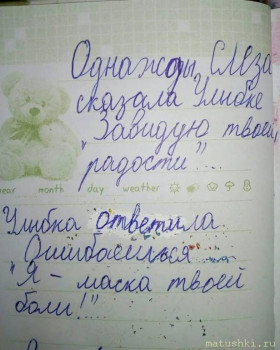 Однажды Слеза
сказала Улыбке
"Завидую твоей
радости"...
year month day weather
Улыбка ответила.
Ошибаешься
"Я - маска твоей
боли!"
matushki.ru